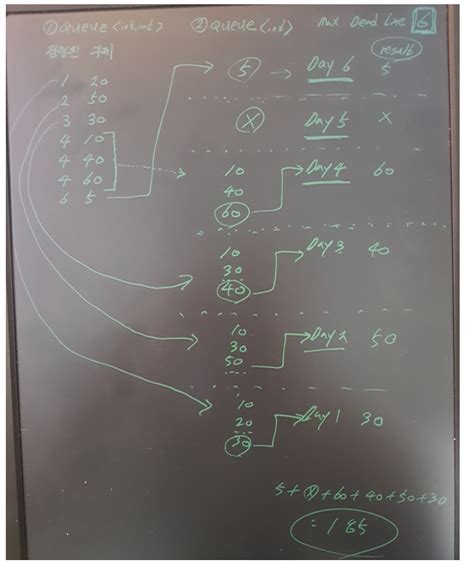 ① Queue <int,int>
② Queue <int>
Max Dead Line 6
result
1 20
2 50
3 30
4 10
4 40
4 60
6 5
5 → Day 6 5
X Day 5 X
10
40
60 Day 4 60
10
30
40 Day 3 40
10
30
50 Day 2 50
10
20
30 Day 1 30
5+X+60+40+50+30
=185